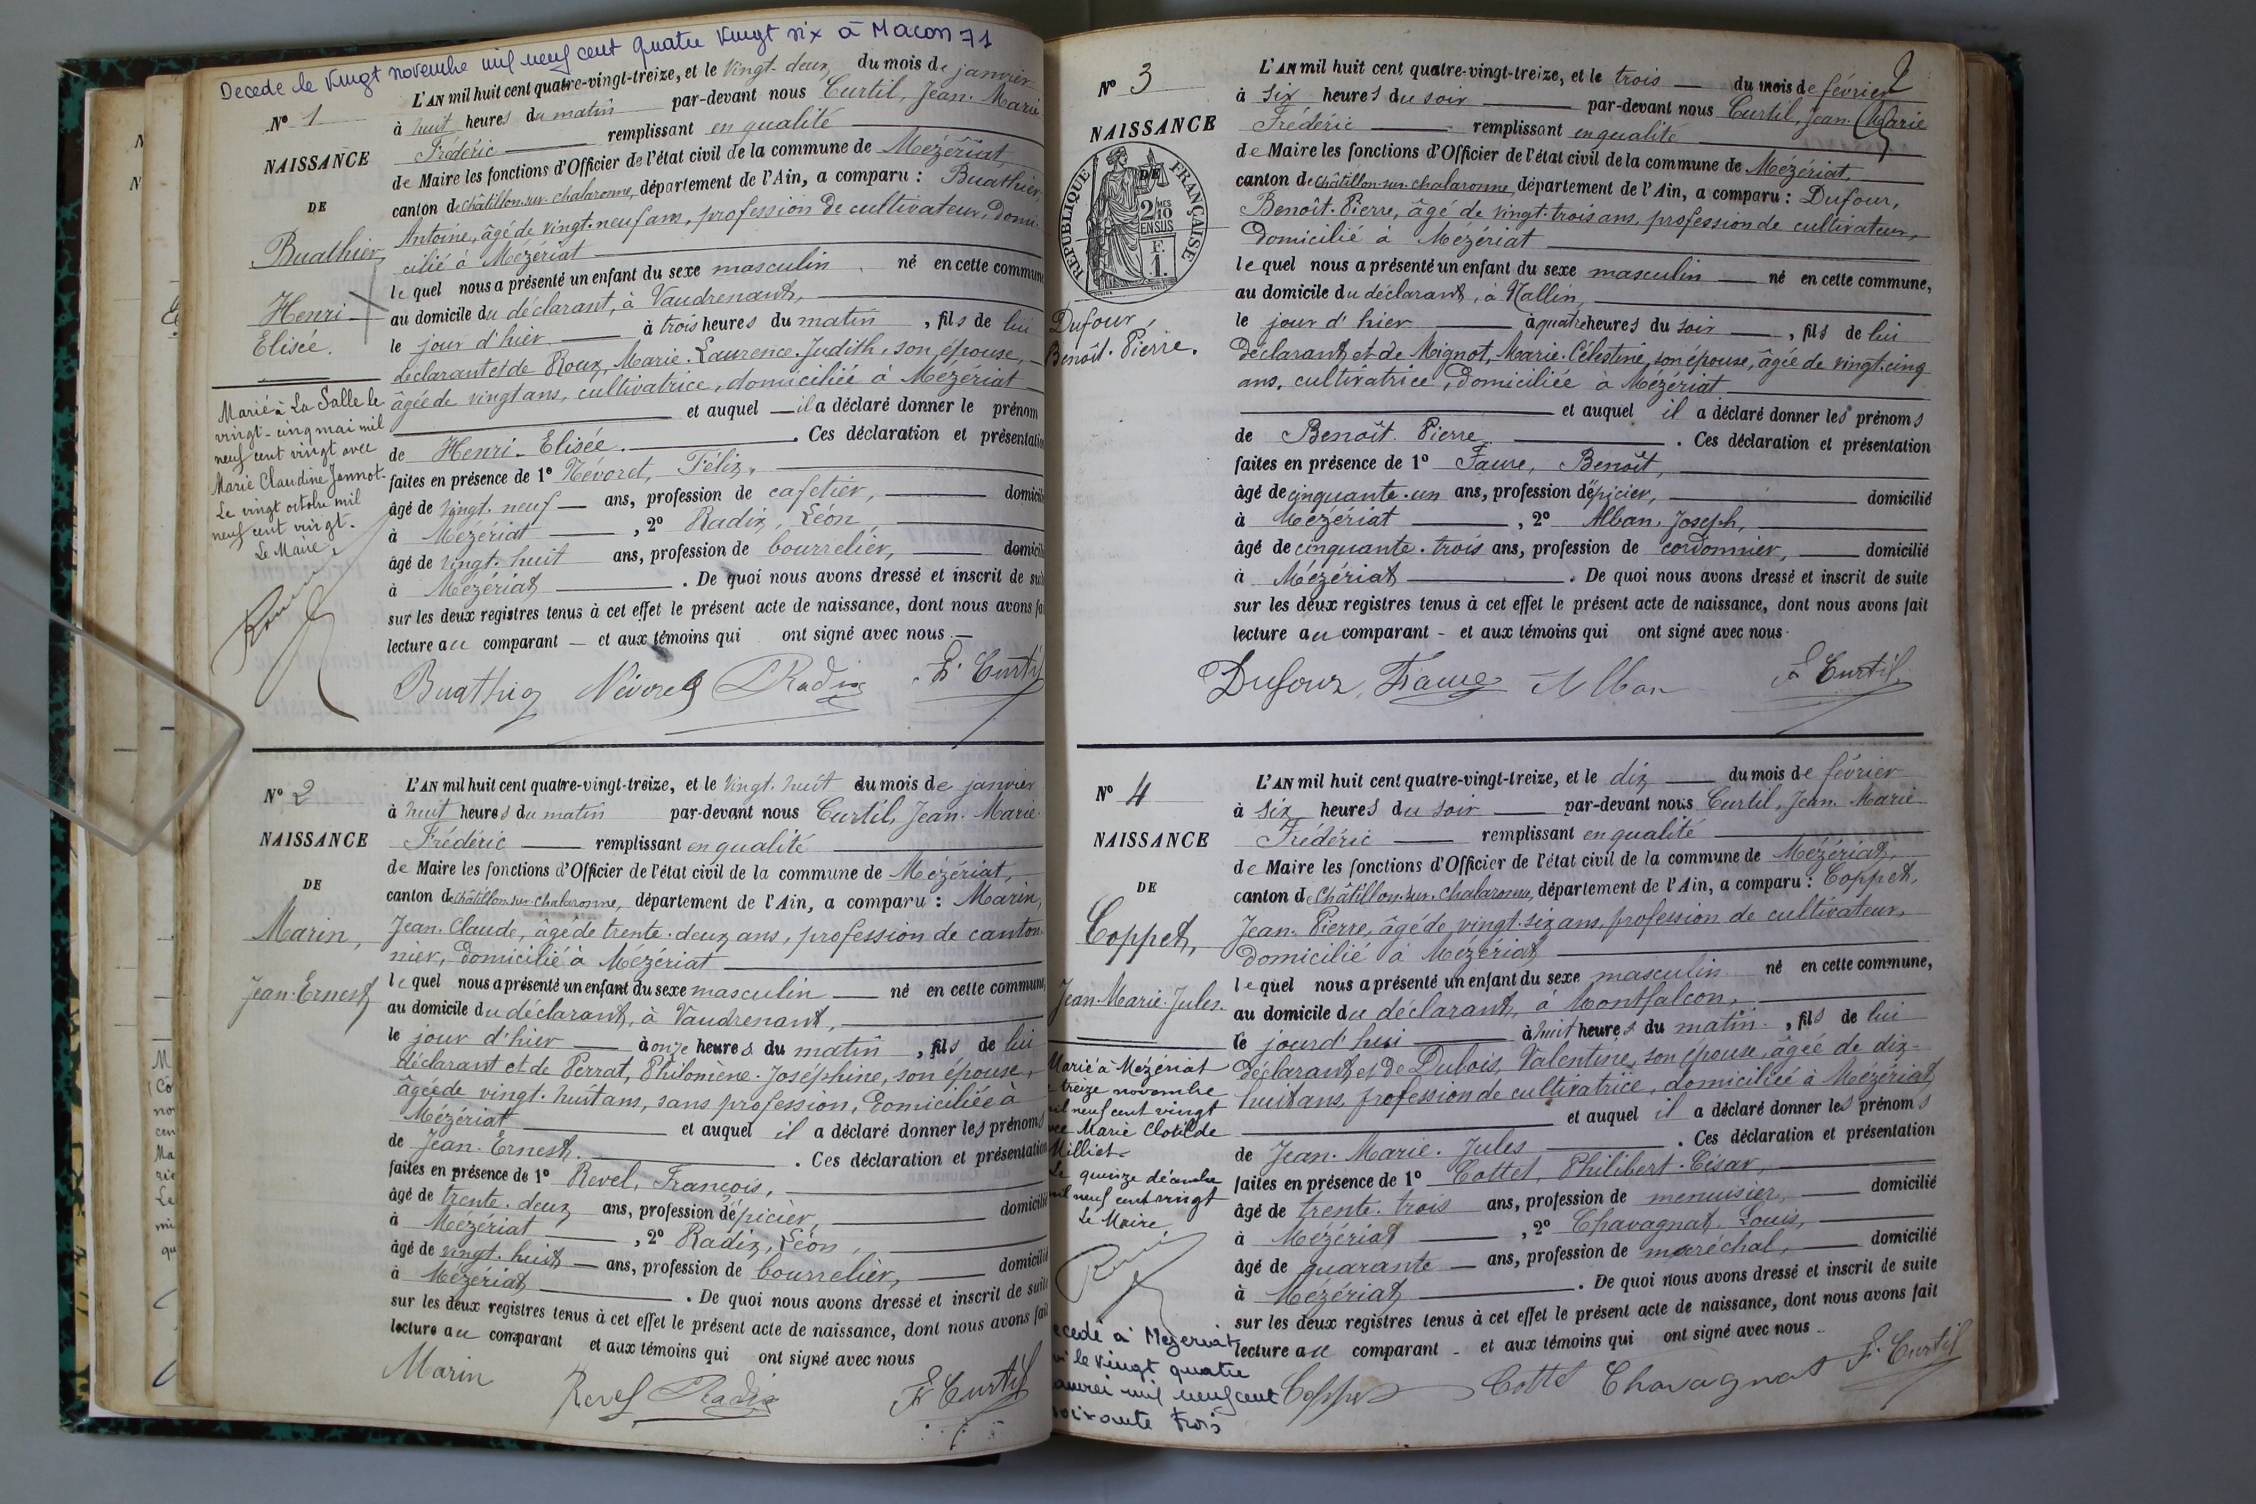 Decede le vingt novembre mil neuf cent quatre vingt six à Macon 71
N° 1
NAISSANCE
DE
Buathier,
Henri-
Elisée.
Marié à La Salle le
vingt-cinq mai mil
neuf cent vingt avec
Marie Claudine Jannot.
Le vingt octobre mil
neuf cent vingt.
Le Maire,
L'AN mil huit cent quatre-vingt-treize, et le vingt-deux du mois de janvier
à huit heures du matin par-devant nous Curtil, Jean-Marie
Frédéric remplissant en qualité
de Maire les fonctions d'Officier de l'état civil de la commune de Mézériat,
canton de Châtillon-sur-Chalaronne, département de l'Ain, a comparu : Buathier,
Antoine, âgé de vingt-neuf ans, profession de cultivateur, domi-
cilié à Mézériat
lequel nous a présenté un enfant du sexe masculin né en cette commune
au domicile du déclarant, à Vaudrenant,
le jour d'hier à trois heures du matin, fils de lui
déclarant et de Roux, Marie-Laurence-Judith, son épouse,
âgée de vingt ans, cultivatrice, domiciliée à Mézériat
et auquel il a déclaré donner le prénom
de Henri-Elisée. Ces déclaration et présentation
faites en présence de 1° Névoret, Félix,
âgé de vingt-neuf ans, profession de cafetier, domicilié
à Mézériat, 2° Radix, Léon,
âgé de vingt-huit ans, profession de bourrelier, domicilié
à Mézériat. De quoi nous avons dressé et inscrit de suite
sur les deux registres tenus à cet effet le présent acte de naissance, dont nous avons fait
lecture au comparant et aux témoins qui ont signé avec nous.
Buathier Névoret LRadix F. Curtil
N° 2
NAISSANCE
DE
Marin,
Jean-Ernest
L'AN mil huit cent quatre-vingt-treize, et le vingt-huit du mois de janvier
à huit heures du matin par-devant nous Curtil, Jean-Marie
Frédéric remplissant en qualité
de Maire les fonctions d'Officier de l'état civil de la commune de Mézériat,
canton de Châtillon-sur-Chalaronne, département de l'Ain, a comparu : Marin,
Jean-Claude, âgé de trente-deux ans, profession de canton-
nier, domicilié à Mézériat
lequel nous a présenté un enfant du sexe masculin né en cette commune,
au domicile du déclarant, à Vaudrenant,
le jour d'hier à onze heures du matin, fils de lui
déclarant et de Perrat, Philomène-Joséphine, son épouse,
âgée de vingt-huit ans, sans profession, domiciliée à
Mézériat et auquel il a déclaré donner les prénoms
de Jean-Ernest. Ces déclaration et présentation
faites en présence de 1° Revel, François,
âgé de trente-deux ans, profession d'épicier, domicilié
à Mézériat, 2° Radix, Léon,
âgé de vingt-huit ans, profession de bourrelier, domicilié
à Mézériat. De quoi nous avons dressé et inscrit de suite
sur les deux registres tenus à cet effet le présent acte de naissance, dont nous avons fait
lecture au comparant et aux témoins qui ont signé avec nous
Marin Revel LRadix F. Curtil
2
N° 3
NAISSANCE
DE
RÉPUBLIQUE FRANÇAISE
2 MES
10
EN SUS
F.
1.
Dufour,
Benoît-Pierre.
L'AN mil huit cent quatre-vingt-treize, et le trois du mois de février
à six heures du soir par-devant nous Curtil, Jean-Marie
Frédéric remplissant en qualité
de Maire les fonctions d'Officier de l'état civil de la commune de Mézériat,
canton de Châtillon-sur-Chalaronne, département de l'Ain, a comparu : Dufour,
Benoît-Pierre, âgé de vingt-trois ans, profession de cultivateur,
domicilié à Mézériat
lequel nous a présenté un enfant du sexe masculin né en cette commune,
au domicile du déclarant, à Nallin,
le jour d'hier à quatre heures du soir, fils de lui
déclarant et de Mignot, Marie-Célestine, son épouse, âgée de vingt-cinq
ans, cultivatrice, domiciliée à Mézériat
et auquel il a déclaré donner les prénoms
de Benoît-Pierre. Ces déclaration et présentation
faites en présence de 1° Faure, Benoît,
âgé de cinquante-un ans, profession d'épicier, domicilié
à Mézériat, 2° Alban, Joseph,
âgé de cinquante-trois ans, profession de cordonnier, domicilié
à Mézériat. De quoi nous avons dressé et inscrit de suite
sur les deux registres tenus à cet effet le présent acte de naissance, dont nous avons fait
lecture au comparant - et aux témoins qui ont signé avec nous.
Dufour, Faure Alban F. Curtil
N° 4
NAISSANCE
DE
Coppet,
Jean-Marie-Jules.
Marié à Mézériat
treize novembre
mil neuf cent vingt
Marie Clotilde
Milliet.
Le quinze décembre
mil neuf cent vingt
Le Maire
L'AN mil huit cent quatre-vingt-treize, et le dix du mois de février
à six heures du soir par-devant nous Curtil, Jean-Marie
Frédéric remplissant en qualité
de Maire les fonctions d'Officier de l'état civil de la commune de Mézériat,
canton de Châtillon-sur-Chalaronne, département de l'Ain, a comparu : Coppet,
Jean-Pierre, âgé de vingt-six ans, profession de cultivateur,
domicilié à Mézériat
lequel nous a présenté un enfant du sexe masculin né en cette commune,
au domicile du déclarant, à Montfalcon,
le jourd'hui à huit heures du matin, fils de lui
déclarant et de Dubois, Valentine, son épouse, âgée de dix-
huit ans, profession de cultivatrice, domiciliée à Mézériat
et auquel il a déclaré donner les prénoms
de Jean-Marie-Jules. Ces déclaration et présentation
faites en présence de 1° Cottet, Philibert-César,
âgé de trente-trois ans, profession de menuisier, domicilié
à Mézériat, 2° Chavagnat, Louis,
âgé de quarante ans, profession de maréchal, domicilié
à Mézériat. De quoi nous avons dressé et inscrit de suite
sur les deux registres tenus à cet effet le présent acte de naissance, dont nous avons fait
lecture au comparant - et aux témoins qui ont signé avec nous.
Coppet Cottet Chavagnat F. Curtil
ecedé à Mezeriat
le vingt quatre
mil neuf cent
soixante trois